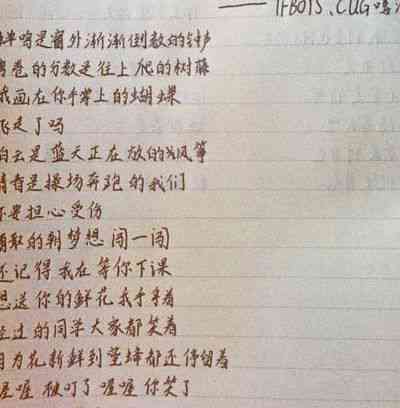 —— TFBOYS
鸣是窗外渐渐倒数的钟声
卷的分数是往上爬的树藤
我画在你手掌上的蝴蝶
飞走了吗
白云是蓝天正在放的风筝
是操场奔跑的我们
要担心受伤
敢的朝梦想闯一闯
还记得我在等你下课
想送你的鲜花我手拿着
过的同学大家都笑着
因为花新鲜到蜜蜂都还停留着
喔喔 被叮了 喔喔 你笑了